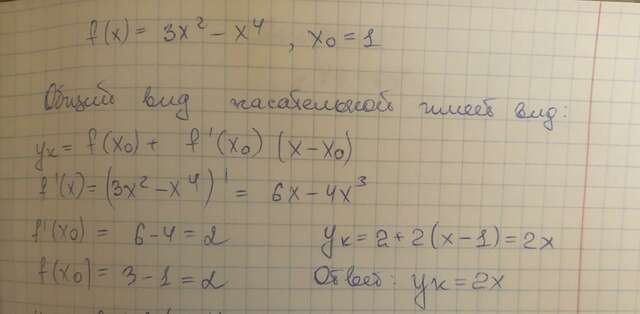 f(x) = 3x² - x⁴, x₀ = 1
Общий вид касательной имеет вид:
yк = f(x₀) + f'(x₀) (x - x₀)
f'(x) = (3x² - x⁴)' = 6x - 4x³
f'(x₀) = 6 - 4 = 2
yк = 2 + 2(x - 1) = 2x
f(x₀) = 3 - 1 = 2
Ответ: yк = 2x